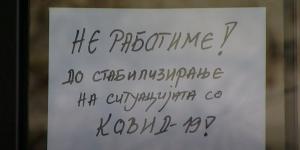 НЕ РАБОТИМЕ!
ДО СТАБИЛИЗИРАЊЕ
НА СИТУАЦИЈАТА СО
КОВИД-19!